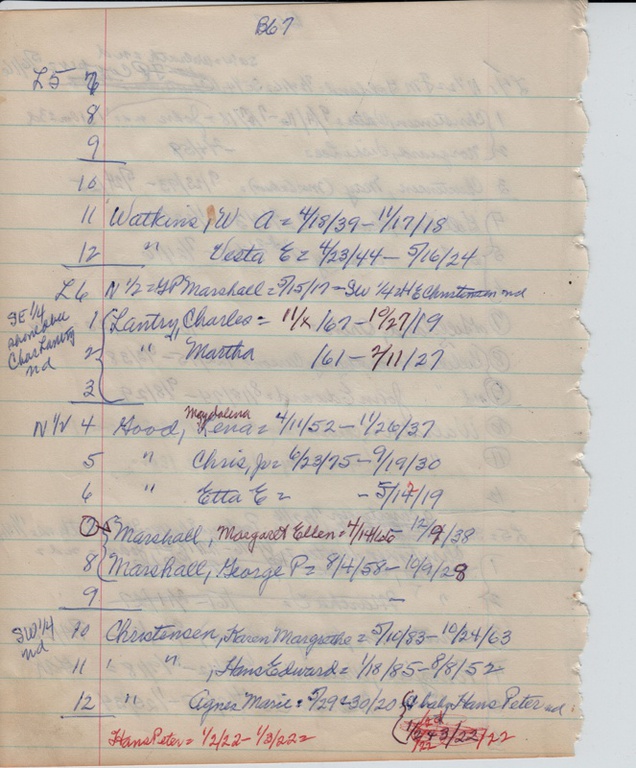 B67
L5 7
8
9
10
11 Watkins, W A = 4/18/39 - 11/17/18
12 " Vesta E = 4/23/44 - 5/16/24
L6 N 1/2 = G P Marshall = 5/15/17 - SW 1/4 = H E Christensen nd
SE 1/4
Char Lantry
nd
1 Lantry, Charles = 11/x/67 - 10/27/19
2 " , Martha /61 - 2/11/27
3
Magdalena
N 1/2 4 Good, Lena = 4/11/52 - 11/26/37
5 " Chris, Jr = 6/23/75 - 9/19/30
6 " Etta E = - 5/17/19
7 Marshall, Margaret Ellen = 12/9/38
8 Marshall, George P = 8/4/58 - 10/9/28
9 -
SW 1/4
nd
10 Christensen, Karen Margrethe = 5/10/83 - 10/24/63
11 " " , Hans Edward = 1/18/85 - 8/8/52
12 " Agnes Marie = & baby Hans Peter nd
Hans Peter = 1/2/22 - 1/3/22 =